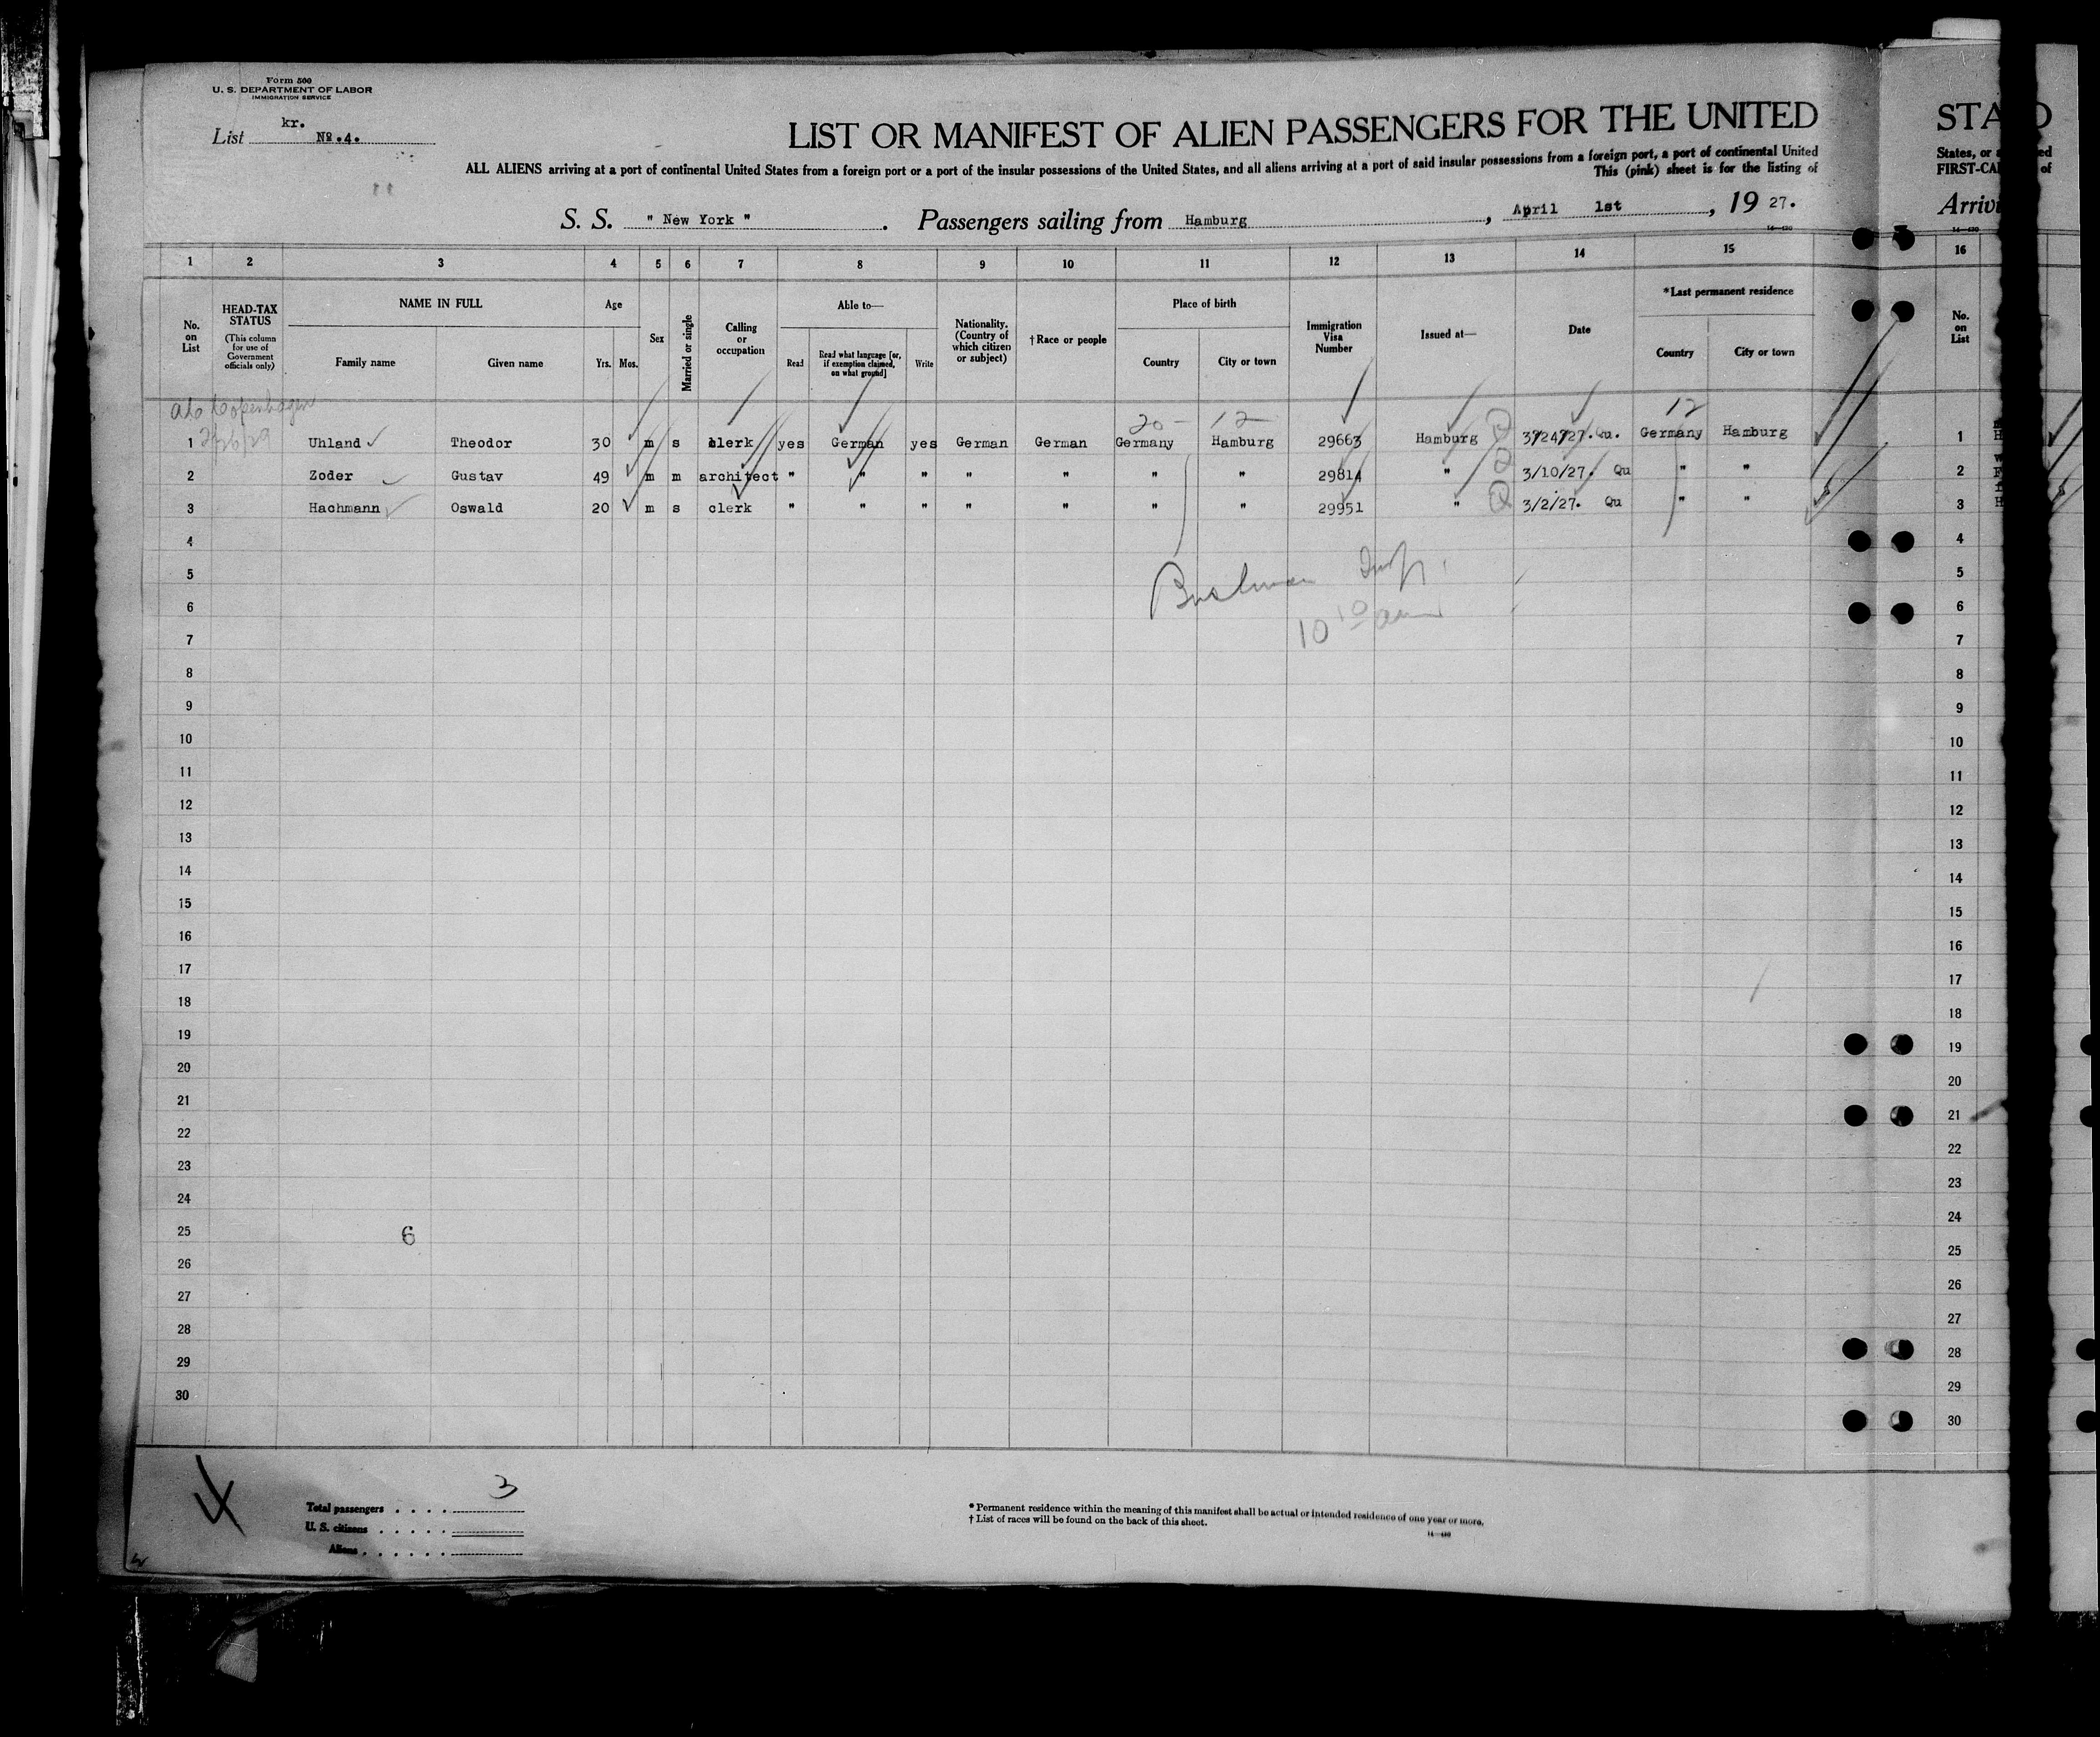 Form 500
U. S. DEPARTMENT OF LABOR
IMMIGRATION SERVICE
kr.
List № .4.
LIST OR MANIFEST OF ALIEN PASSENGERS FOR THE UNITED
ALL ALIENS arriving at a port of continental United States from a foreign port or a port of the insular possessions of the United States, and all aliens arriving at a port of said insular possessions from a foreign port, a port of continental United
This (pink) sheet is for the listing of
S. S. " New York " . Passengers sailing from Hamburg , April 1st , 19 27.
STA
States, or
FIRST-CA
Arriv
ed
of
1 2 3 4 5 6 7 8 9 10 11 12 13 14 15 16
No. on List
HEAD-TAX STATUS
(This column for use of Government officials only)
NAME IN FULL
Family name Given name
Age
Yrs. Mos.
Sex
Married or single
Calling or occupation
Able to—
Read
Read what language [or, if exemption claimed, on what ground]
Write
Nationality. (Country of which citizen or subject)
† Race or people
Place of birth
Country City or town
Immigration Visa Number
Issued at—
Date
*Last permanent residence
Country City or town
No. on List
Copenhagen
20- 12 12
1 Uhland Theodor 30 m s clerk yes German yes German German Germany Hamburg 29663 Hamburg 3/24/27. Qu. Germany Hamburg 1
2 Zoder Gustav 49 m m architect " " " " " " " 29814 " 3/10/27. Qu " " 2
3 Hachmann Oswald 20 m s clerk " " " " " " " 29951 " 3/2/27. Qu " " 3
4 4
5 5
6 6
10 10 am
7 7
8 8
9 9
10 10
11 11
12 12
13 13
14 14
15 15
16 16
17 17
18 18
19 19
20 20
21 21
22 22
23 23
24 24
25 6 25
26 26
27 27
28 28
29 29
30 30
Total passengers . . . . 3
U. S. citizens . . . . .
Aliens . . . . . .
* Permanent residence within the meaning of this manifest shall be actual or intended residence of one year or more.
† List of races will be found on the back of this sheet.